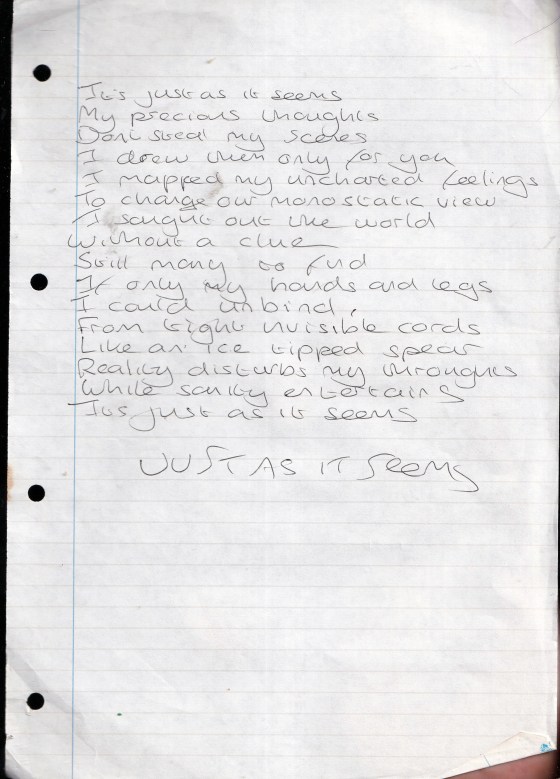 It's just as it seems
My precious thoughts
Dont steal my scenes
I drew them only for you
I mapped my uncharted feelings
To change our monostatic view
I saught out the world
Without a clue
Still many to find
If only my hands and legs
I could unbind.
From tight invisible cords
Like an ice tipped spear
Reality disturbs my throughts
While sanity entertains
It's just as it seems
JUST AS IT SEEMS